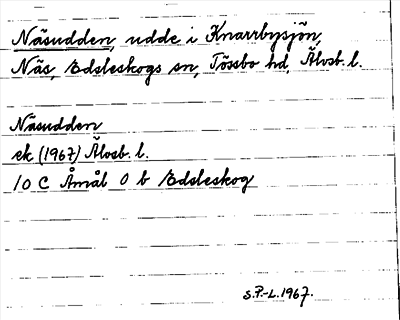 Näsudden, udde i Knarrbysjön,
Näs, Edsleskogs sn, Tössbo hd, Älvsb. l.
Näsudden
ek (1967) Älvsb. l.
10 C Åmål 0 b Edsleskog
S.P.-L. 1967.